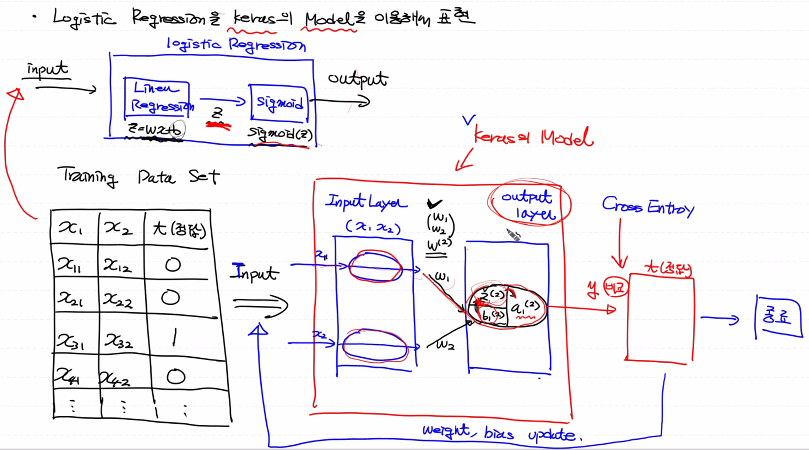 · Logistic Regression을 keras의 Model을 이용해서 표현
logistic Regression
input
Linear Regression
Z
Sigmoid
output
Z=Wx+b
Sigmoid(Z)
Training Data Set
x₁ x₂ t(정답)
x₁₁ x₁₂ 0
x₂₁ x₂₂ 0
x₃₁ x₃₂ 1
x₄₁ x₄₂ 0
⋮ ⋮ ⋮
Input
keras의 Model
Input Layer
(x₁ x₂)
(W₁
W₂)
W⁽²⁾
output
layer
x₁
x₂
W₁
W₂
Z⁽²⁾
b₁⁽²⁾
a₁⁽²⁾
Cross Entropy
y 비교
t(정답)
종료
weight, bias update.